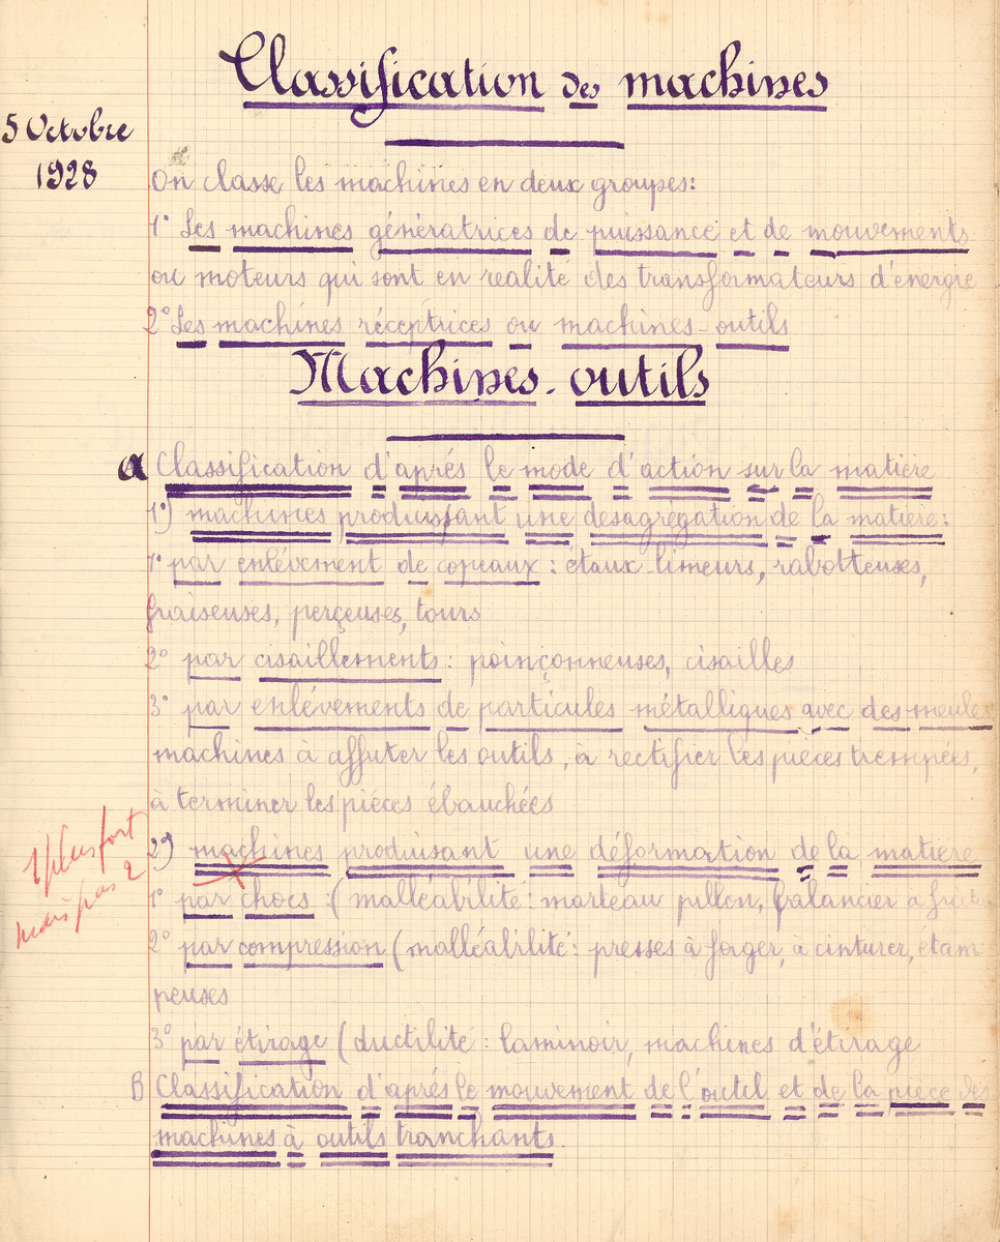 Classification des machines
5 Octobre
1928
On classe les machines en deux groupes:
1° Les machines génératrices de puissance et de mouvements
ou moteurs qui sont en realité des transformateurs d'énergie
2° Les machines réceptrices ou machines-outils
Machines-outils
A Classification d'aprés le mode d'action sur la matière
1°) machines produisant une desagrégation de la matiere:
1° par enlévement de copeaux : étaux-limeurs, raboteuses,
fraiseuses, perçeuses, tours
2° par cisaillements : poinçonneuses, cisailles
3° par enlévements de particules métalliques avec des meules
machines à affuter les outils, à rectifier les pièces trempées,
à terminer les piéces ébauchées
1 plus fort
mais pas 2
2°) machines produisant une déformation de la matière
1° par chocs : (malléabilité : marteau pilon, balancier à
2° par compression (malléabilité : presses à forger, à cintrer, étam
peuses
3° par étirage (ductilité : laminoir, machines d'étirage
B Classification d'aprés le mouvement de l'outil et de la pièce des
machines à outils tranchants.